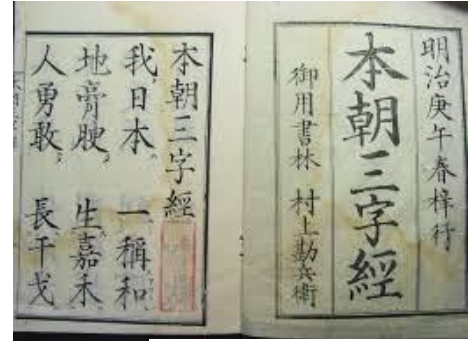 明治庚午春梓行
本朝三字經
御用書林 村上勘兵衛
本朝三字經
我日本。 一稱和。
地膏腴。 生嘉禾。
人勇敢。 長干戈